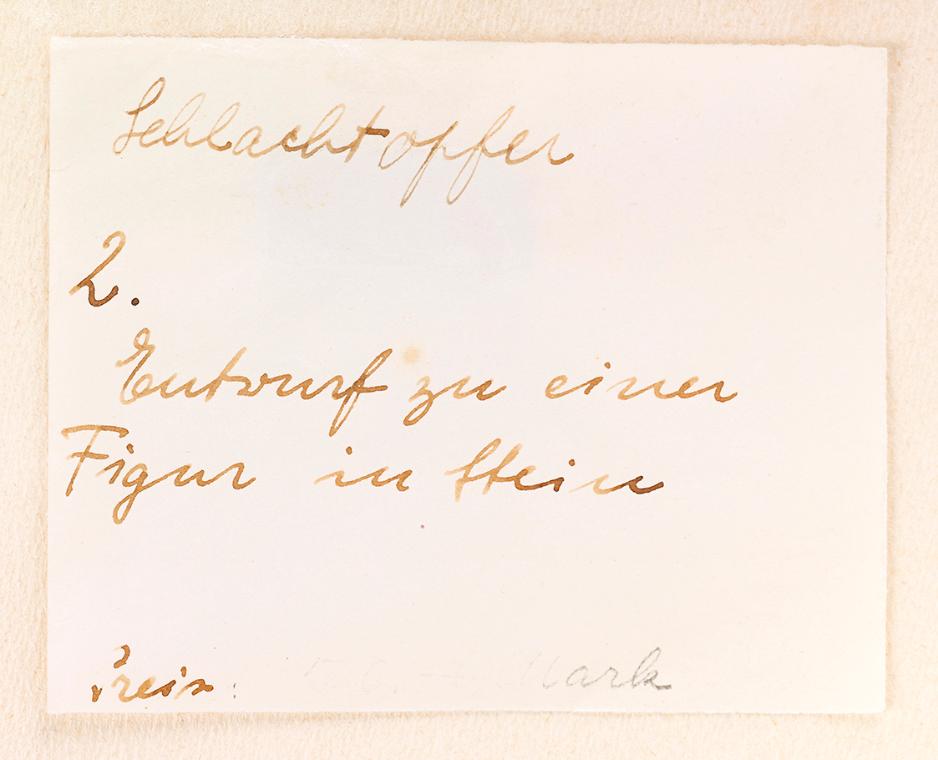 Schlachtopfer
2.
Entwurf zu einer
Figur in Stein
Preis: Mark